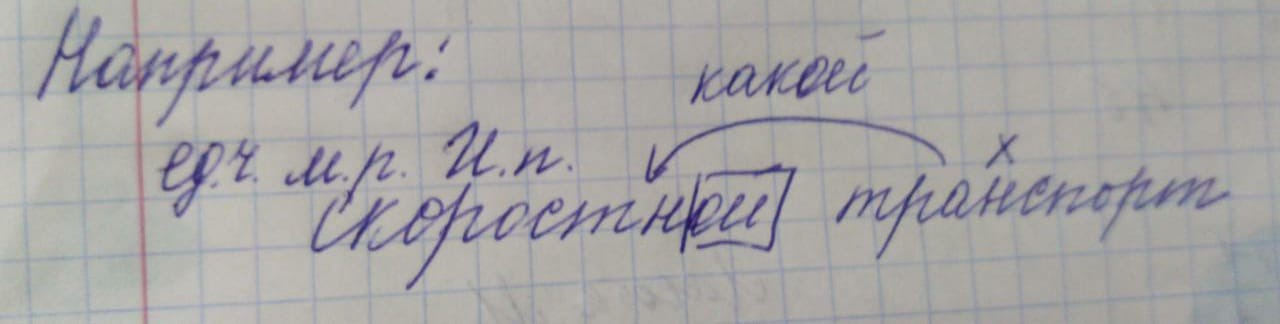 Например:
какой
ед.ч. м.р. И.п. х
скоростной транспорт